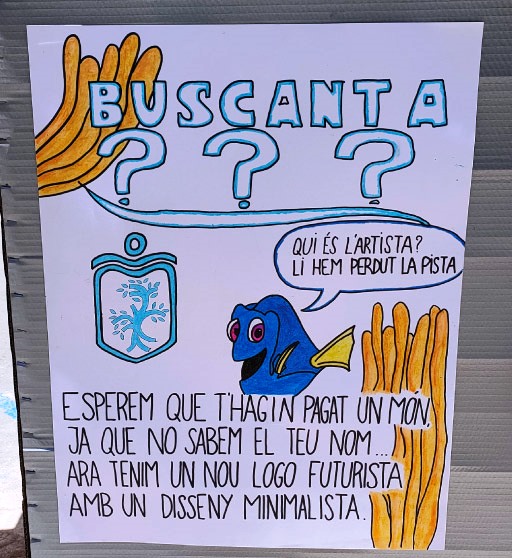 BUSCANT A
? ? ?
QUI ÉS L'ARTISTA?
LI HEM PERDUT LA PISTA
ESPEREM QUE T'HAGIN PAGAT UN MÓN,
JA QUE NO SABEM EL TEU NOM...
ARA TENIM UN NOU LOGO FUTURISTA
AMB UN DISSENY MINIMALISTA.